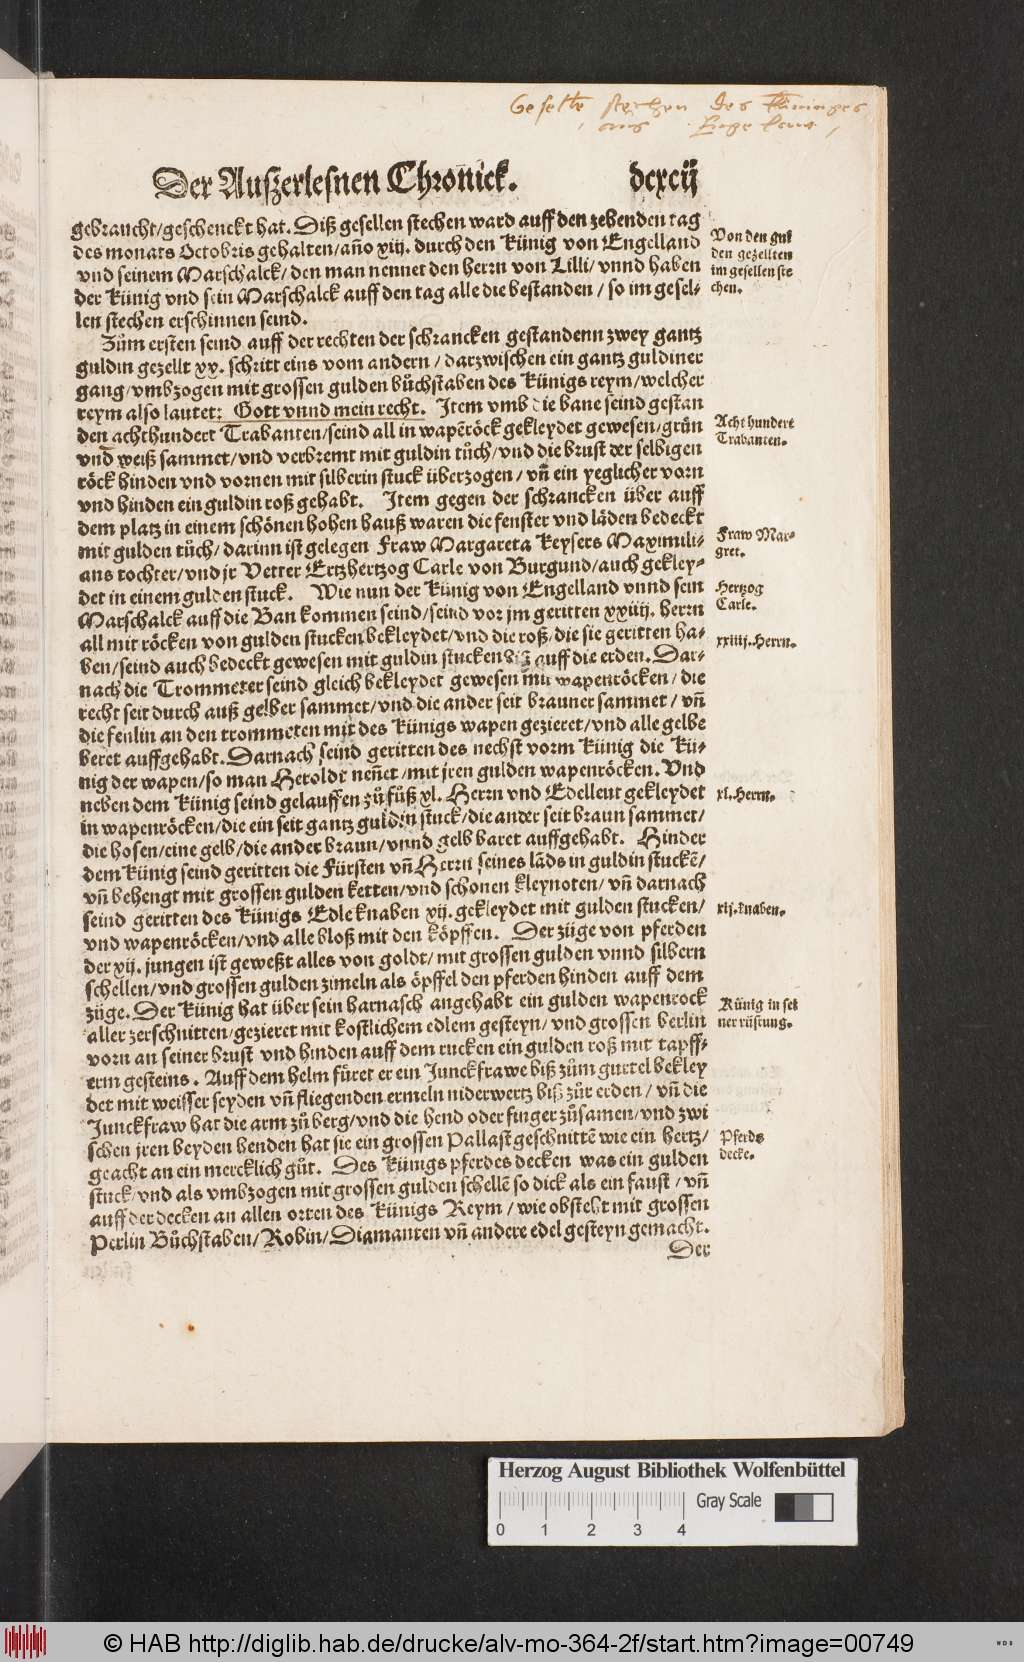 Geselle stechen des Küninges
aus Engelant
Der Auszerlesnen Chronick.
dcxcij
gebraucht/geschenckt hat. Diß gesellen stechen ward auff den zehenden tag
des monats Octobris gehalten/año xiij. durch den Künig von Engelland
vnd seinem Marschalck/den man nennet den herrn von Lilli/vnnd haben
der Künig vnd sein Marschalck auff den tag alle die bestanden/so im gesel-
len stechen erschinnen seind.
Von den gul
den gezellten
im gesellen ste
chen.
Zům ersten seind auff der rechten der schrancken gestandenn zwey gantz
guldin gezellt xx. schritt eins vom andern/darzwischen ein gantz guldiner
gang/vmbzogen mit grossen gulden bůchstaben des Künigs reym/welcher
reym also lautet: Gott vnnd mein recht. Item vmb die bane seind gestan
den achthundert Trabanten/seind all in wapēröck gekleydet gewesen/grün
vnd weiß sammet/vnd verbremt mit guldin tůch/vnd die brust der selbigen
röck hinden vnd vornen mit silberin stuck überzogen/vñ ein yeglicher vorn
vnd hinden ein guldin roß gehabt. Item gegen der schrancken über auff
dem platz in einem schönen hohen hauß waren die fenster vnd läden bedeckt
mit gulden tůch/darinn ist gelegen Fraw Margareta Keysers Maximili-
ans tochter/vnd jr Vetter Ertzhertzog Carle von Burgund/auch gekley-
det in einem gulden stuck. Wie nun der Künig von Engelland vnnd sein
Marschalck auff die Ban kommen seind/seind vor jm geritten xxiiij. herrn
all mit röcken von gulden stucken bekleydet/vnd die roß/die sie geritten ha-
ben/seind auch bedeckt gewesen mit guldin stucken biß auff die erden. Dar-
nach die Trommeter seind gleich bekleydet gewesen mit wapenröcken/die
recht seit durch auß gelber sammet/vnd die ander seit brauner sammet/vñ
die fenlin an den trommeten mit des Künigs wapen gezieret/vnd alle gelbe
beret auffgehabt. Darnach seind geritten des nechst vorm Künig die Kü-
nig der wapen/so man Heroldt neñet/mit jren gulden wapenröcken. Vnd
neben dem Künig seind gelauffen zů fůß xl. Herrn vnd Edelleut gekleydet
in wapenröcken/die ein seit gantz guldin stuck/die ander seit braun sammet/
die hosen/eine gelb/die ander braun/vnnd gelb baret auffgehabt. Hinder
dem Künig seind geritten die Fürsten vñ Herrn seines lāds in guldin stuckē/
vñ behengt mit grossen gulden ketten/vnd schonen kleynoten/vñ darnach
seind geritten des Künigs Edle knaben xij. gekleydet mit gulden stucken/
vnd wapenröcken/vnd alle bloß mit den köpffen. Der züge von pferden
der xij. jungen ist geweßt alles von goldt/mit grossen gulden vnnd silbern
schellen/vnd grossen gulden zimeln als öpffel den pferden hinden auff dem
züge. Der Künig hat über sein harnasch angehabt ein gulden wapenrock
aller zerschnitten/gezieret mit kostlichem edlem gesteyn/vnd grossen berlin
vorn an seiner brust vnd hinden auff dem rucken ein gulden roß mit tapff-
erm gesteins. Auff dem helm füret er ein Junckfrawe biß zům gurtel bekley
det mit weisser seyden vñ fliegenden ermeln niderwertz biß zůr erden/vñ die
Junckfraw hat die arm zů berg/vnd die hend oder finger zůsamen/vnd zwi
schen jren beyden henden hat sie ein grossen Pallast geschnittē wie ein hertz/
geacht an ein mercklich gůt. Des Künigs pferdes decken was ein gulden
stuck/vnd als vmbzogen mit grossen gulden schellē so dick als ein faust/vñ
auff der decken an allen orten des Künigs Reym/wie obsteht mit grossen
Perlin Bůchstaben/Robin/Diamanten vñ andere edel gesteyn gemacht.
Der
Acht hundert
Trabanten.
Fraw Mar-
gret.
Hertzog
Carle.
xxiiij. Herrn.
xl. Herrn.
xij. knaben.
Künig in sei
ner rüstung.
Pferds
decke.
Herzog August Bibliothek Wolfenbüttel
Gray Scale
0 1 2 3 4
© HAB http://diglib.hab.de/drucke/alv-mo-364-2f/start.htm?image=00749